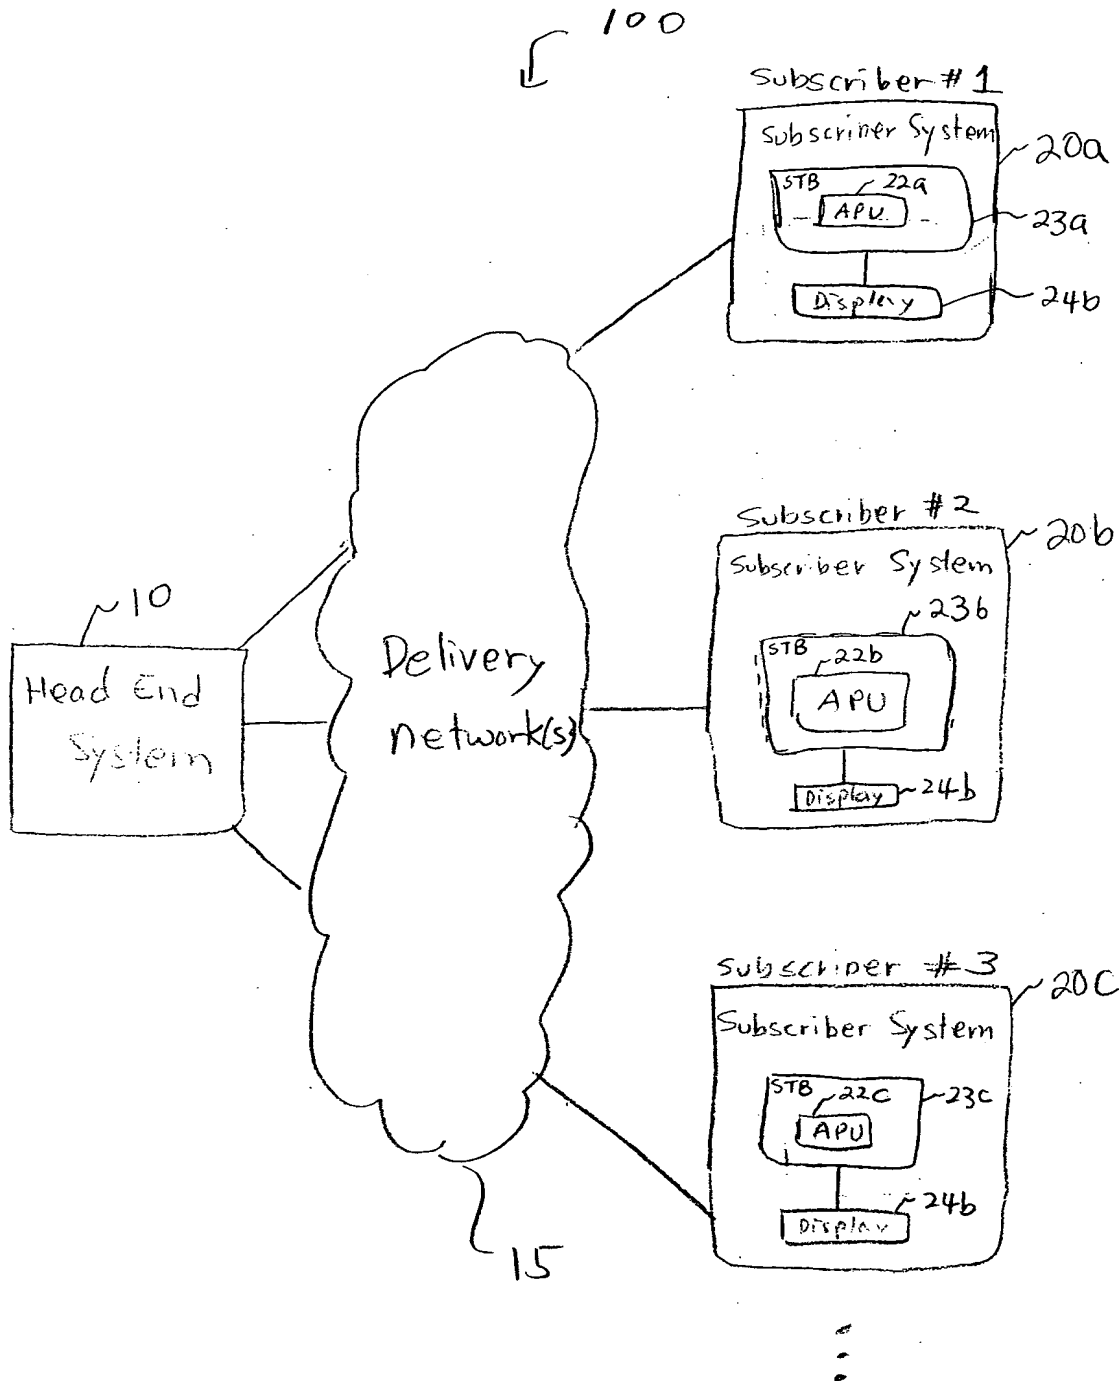 100
Subscriber #1
Subscriber System
20a
STB
22a
APU
23a
Display
24b
Subscriber #2
20b
Subscriber System
23b
STB
22b
APU
Display
24b
10
Head End
System
Delivery
network(s)
Subscriber #3
20C
Subscriber System
STB
22c
23c
APU
24b
Display
15